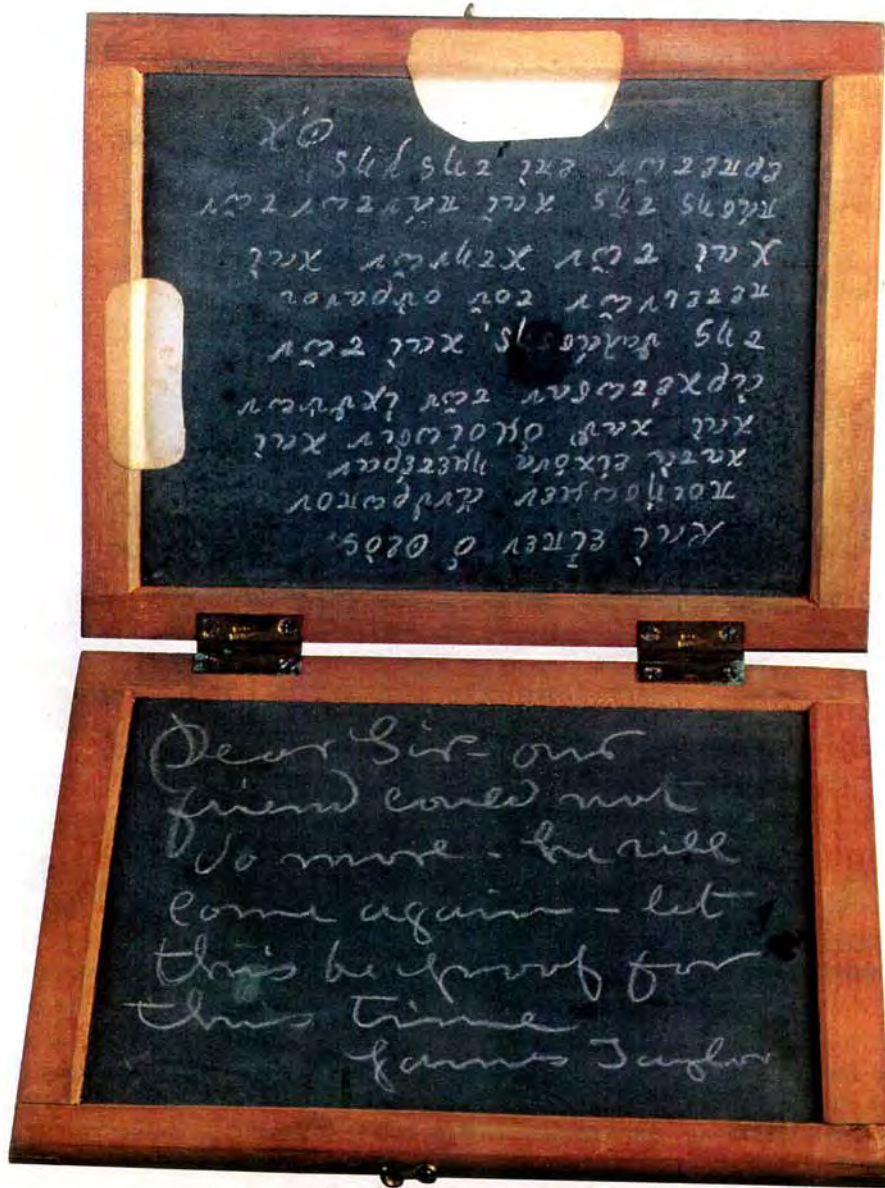 Καὶ εἶπεν ὁ Θεὸς,
ποιήσωμεν ἄνθρωπον
κατ' εἰκόνα ἡμετέραν
καὶ καθ' ὁμοίωσιν καὶ
ἀρχέτωσαν τῶν ἰχθύων
τῆς θαλάσσης, καὶ τῶν
πετεινῶν τοῦ οὐρανοῦ
καὶ τῶν κτηνῶν καὶ
πάσης τῆς καὶ πάντων τῶν
ερπετῶν επὶ τῆς γῆς
Dear Sir - our
friend could not
do more - he will
come again - let
this be proof for
this time
James Taylor